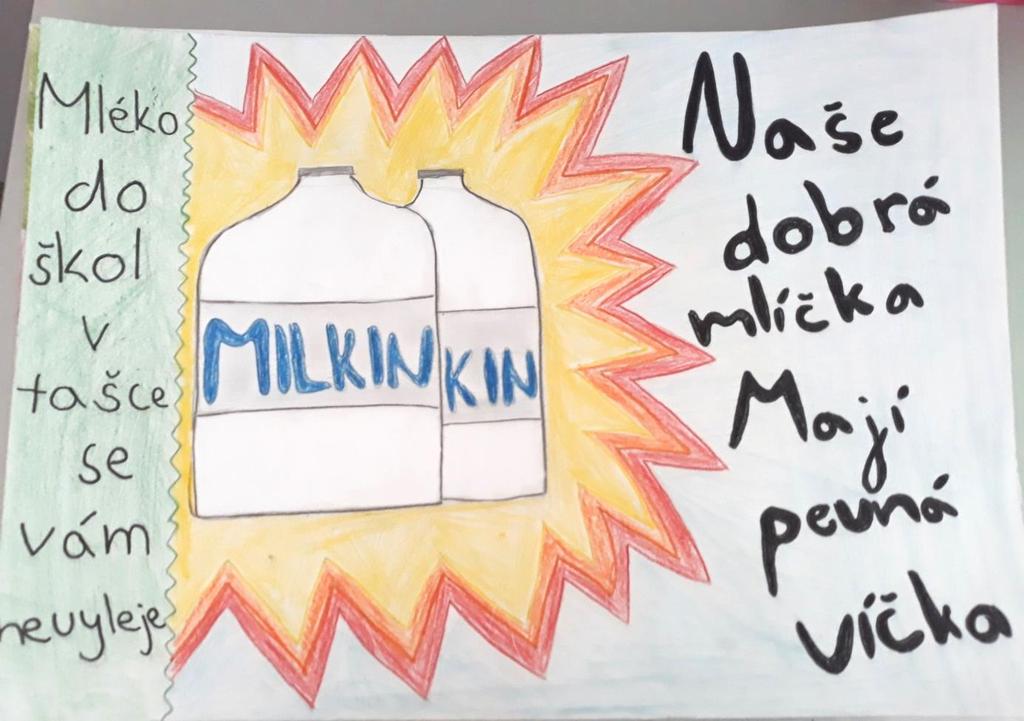 Mléko
do
škol
v
tašce
se
vám
nevyleje
MILKIN
KIN
Naše
dobrá
mlíčka
Mají
pevná
víčka